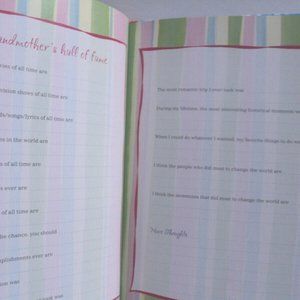 andmother's hall of fame
ries of all time are
vision shows of all time are
ds/songs/lyrics of all time are
es in the world are
s of all time are
s ever are
of all time are
he chance, you should
mplishments ever are
ion was
The most romantic trip I ever took was
During my lifetime, the most interesting historical moments we
When I could do whatever I wanted, my favorite things to do we
I think the people who did most to change the world are
I think the inventions that did most to change the world are
More Thoughts